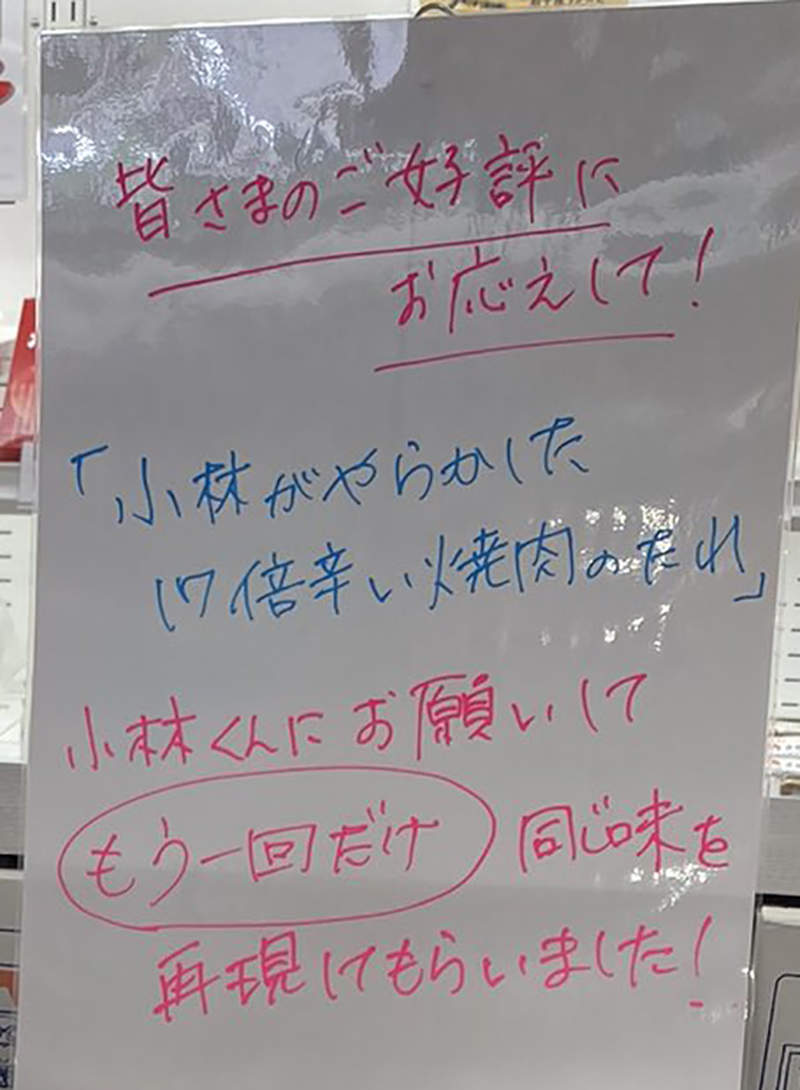 皆さまのご好評に
お応えして!
「小林がやらかした
17倍辛い焼肉のたれ」
小林くんにお願いして
もう一回だけ 同じ味を
再現してもらいました!